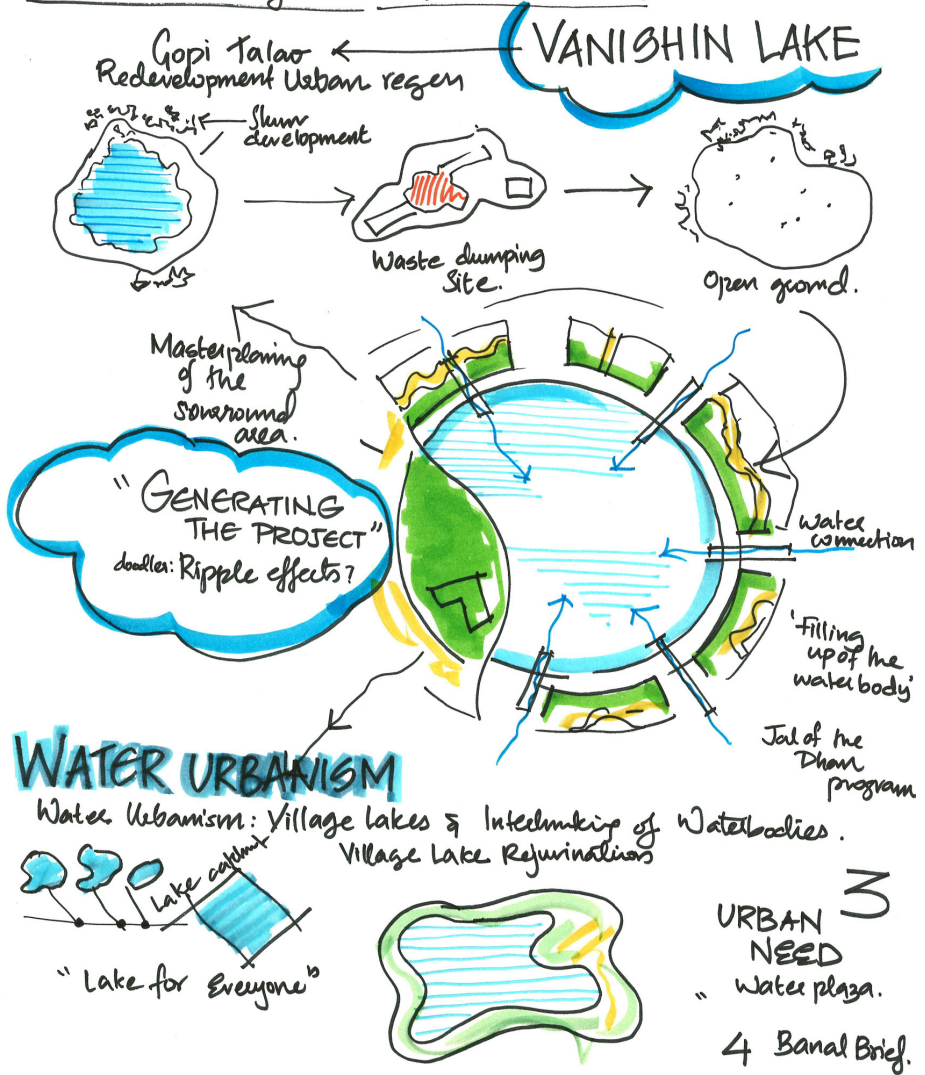 VANISHIN LAKE
Gopi Talao
Redevelopment Urban regen
Slum
development
Waste dumping
Site.
Open ground.
Masterplaning
of the
souround
area.
" GENERATING
THE PROJECT"
doodler: Ripple effects?
Water
connection
'filling
up of the
waterbody'
Jal of the
Dhan
program
WATER URBANISM
Water Urbanism: Village Lakes & Interlinking of Waterbodies.
Village Lake Rejuvinations
Lake catchmt
"Lake for Everyone"
3
URBAN
NEED
" Water plaza.
4 Banal Brief.